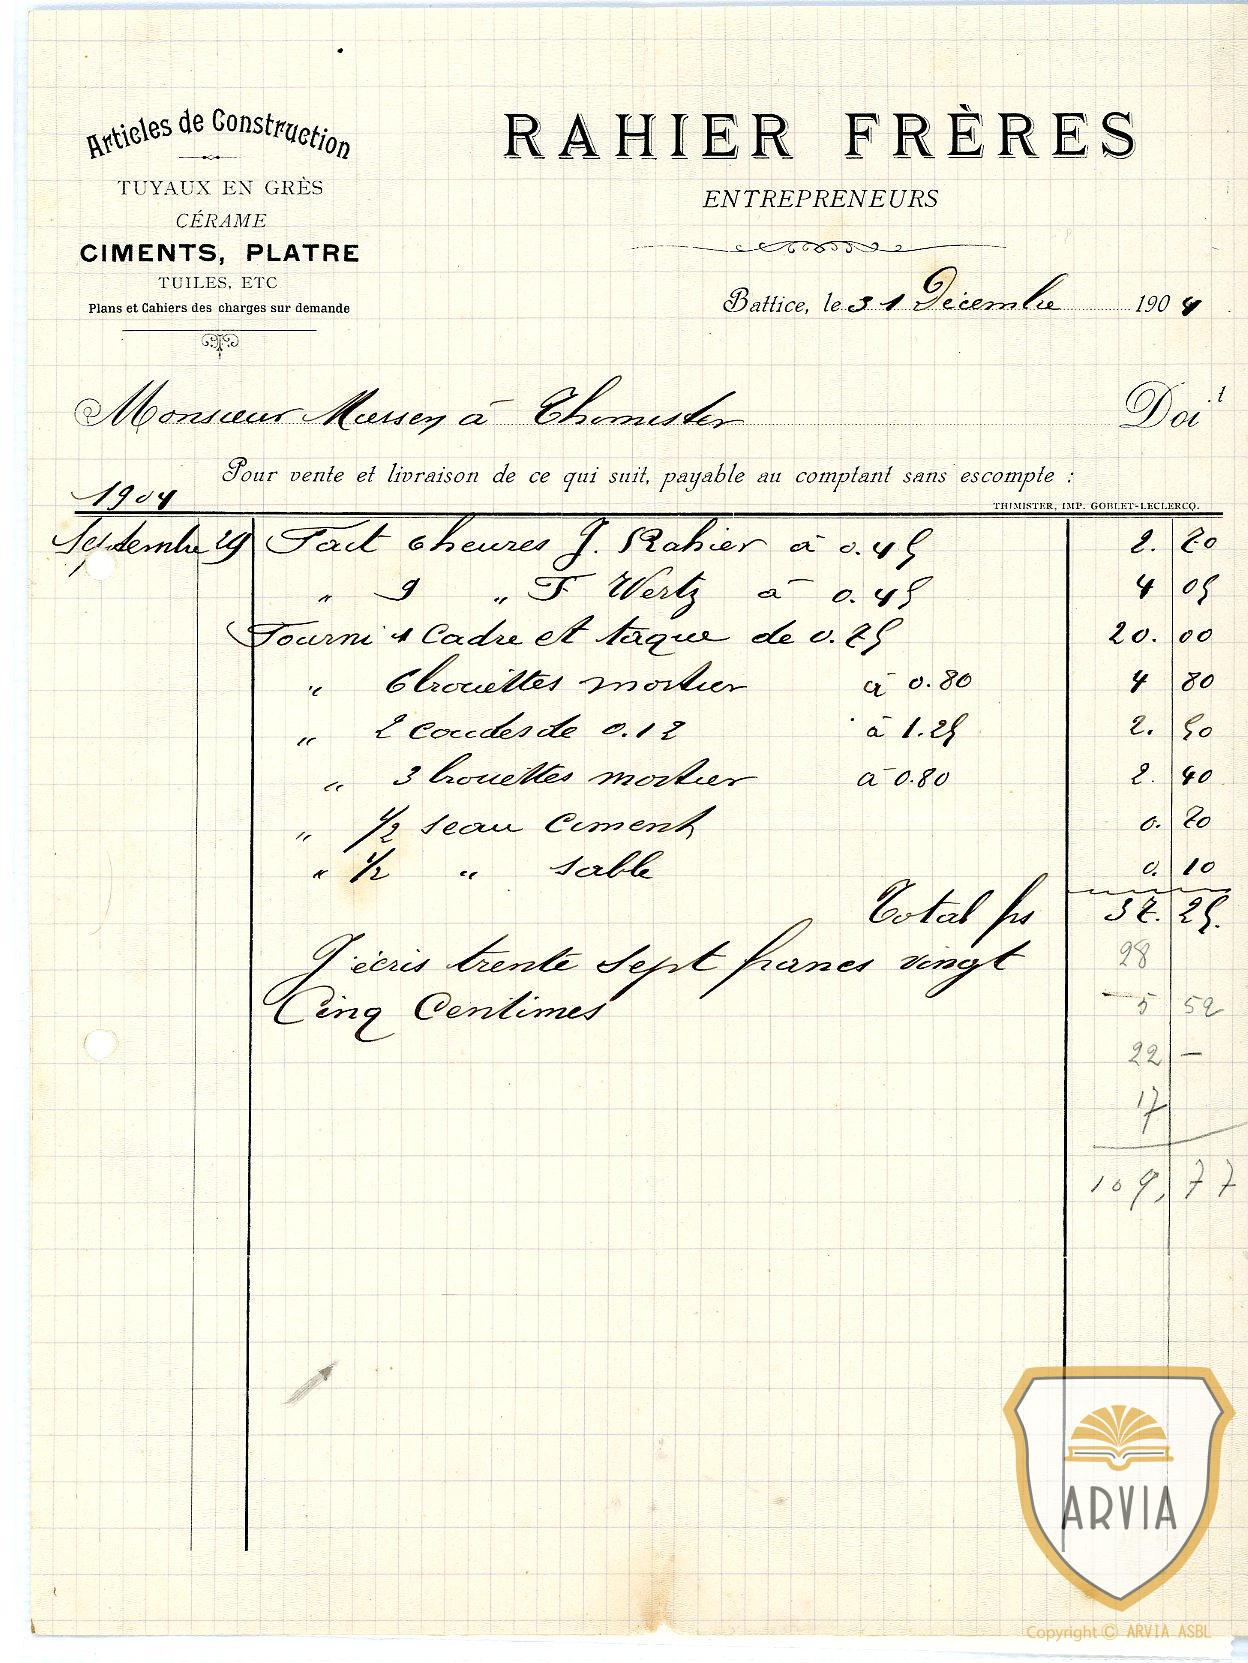 Articles de Construction
TUYAUX EN GRÈS
CÉRAME
CIMENTS, PLATRE
TUILES, ETC
Plans et Cahiers des charges sur demande
RAHIER FRÈRES
ENTREPRENEURS
Battice, le 31 Décembre 1904
Monsieur à Thimister Doit
Pour vente et livraison de ce qui suit, payable au comptant sans escompte :
1904
THIMISTER, IMP. GOBLET-LECLERCQ.
Septembre 29 Fait 6 heures J. Rahier à 0.45 2. 70
" 9 " F Wertz à 0.45 4 05
Fourni 1 Cadre et taque de 0.75 20. 00
" 6 brouettes mortier à 0.80 4 80
" 2 coudes de 0.12 à 1.25 2. 50
" 3 brouettes mortier à 0.80 2. 40
" 1/2 seau Ciment 0. 70
" 1/2 " sable 0. 10
Total frs 37. 25.
J'écris trente sept francs vingt
Cinq Centimes
28
5 52
22 —
17
109,77
ARVIA
Copyright © ARVIA ASBL